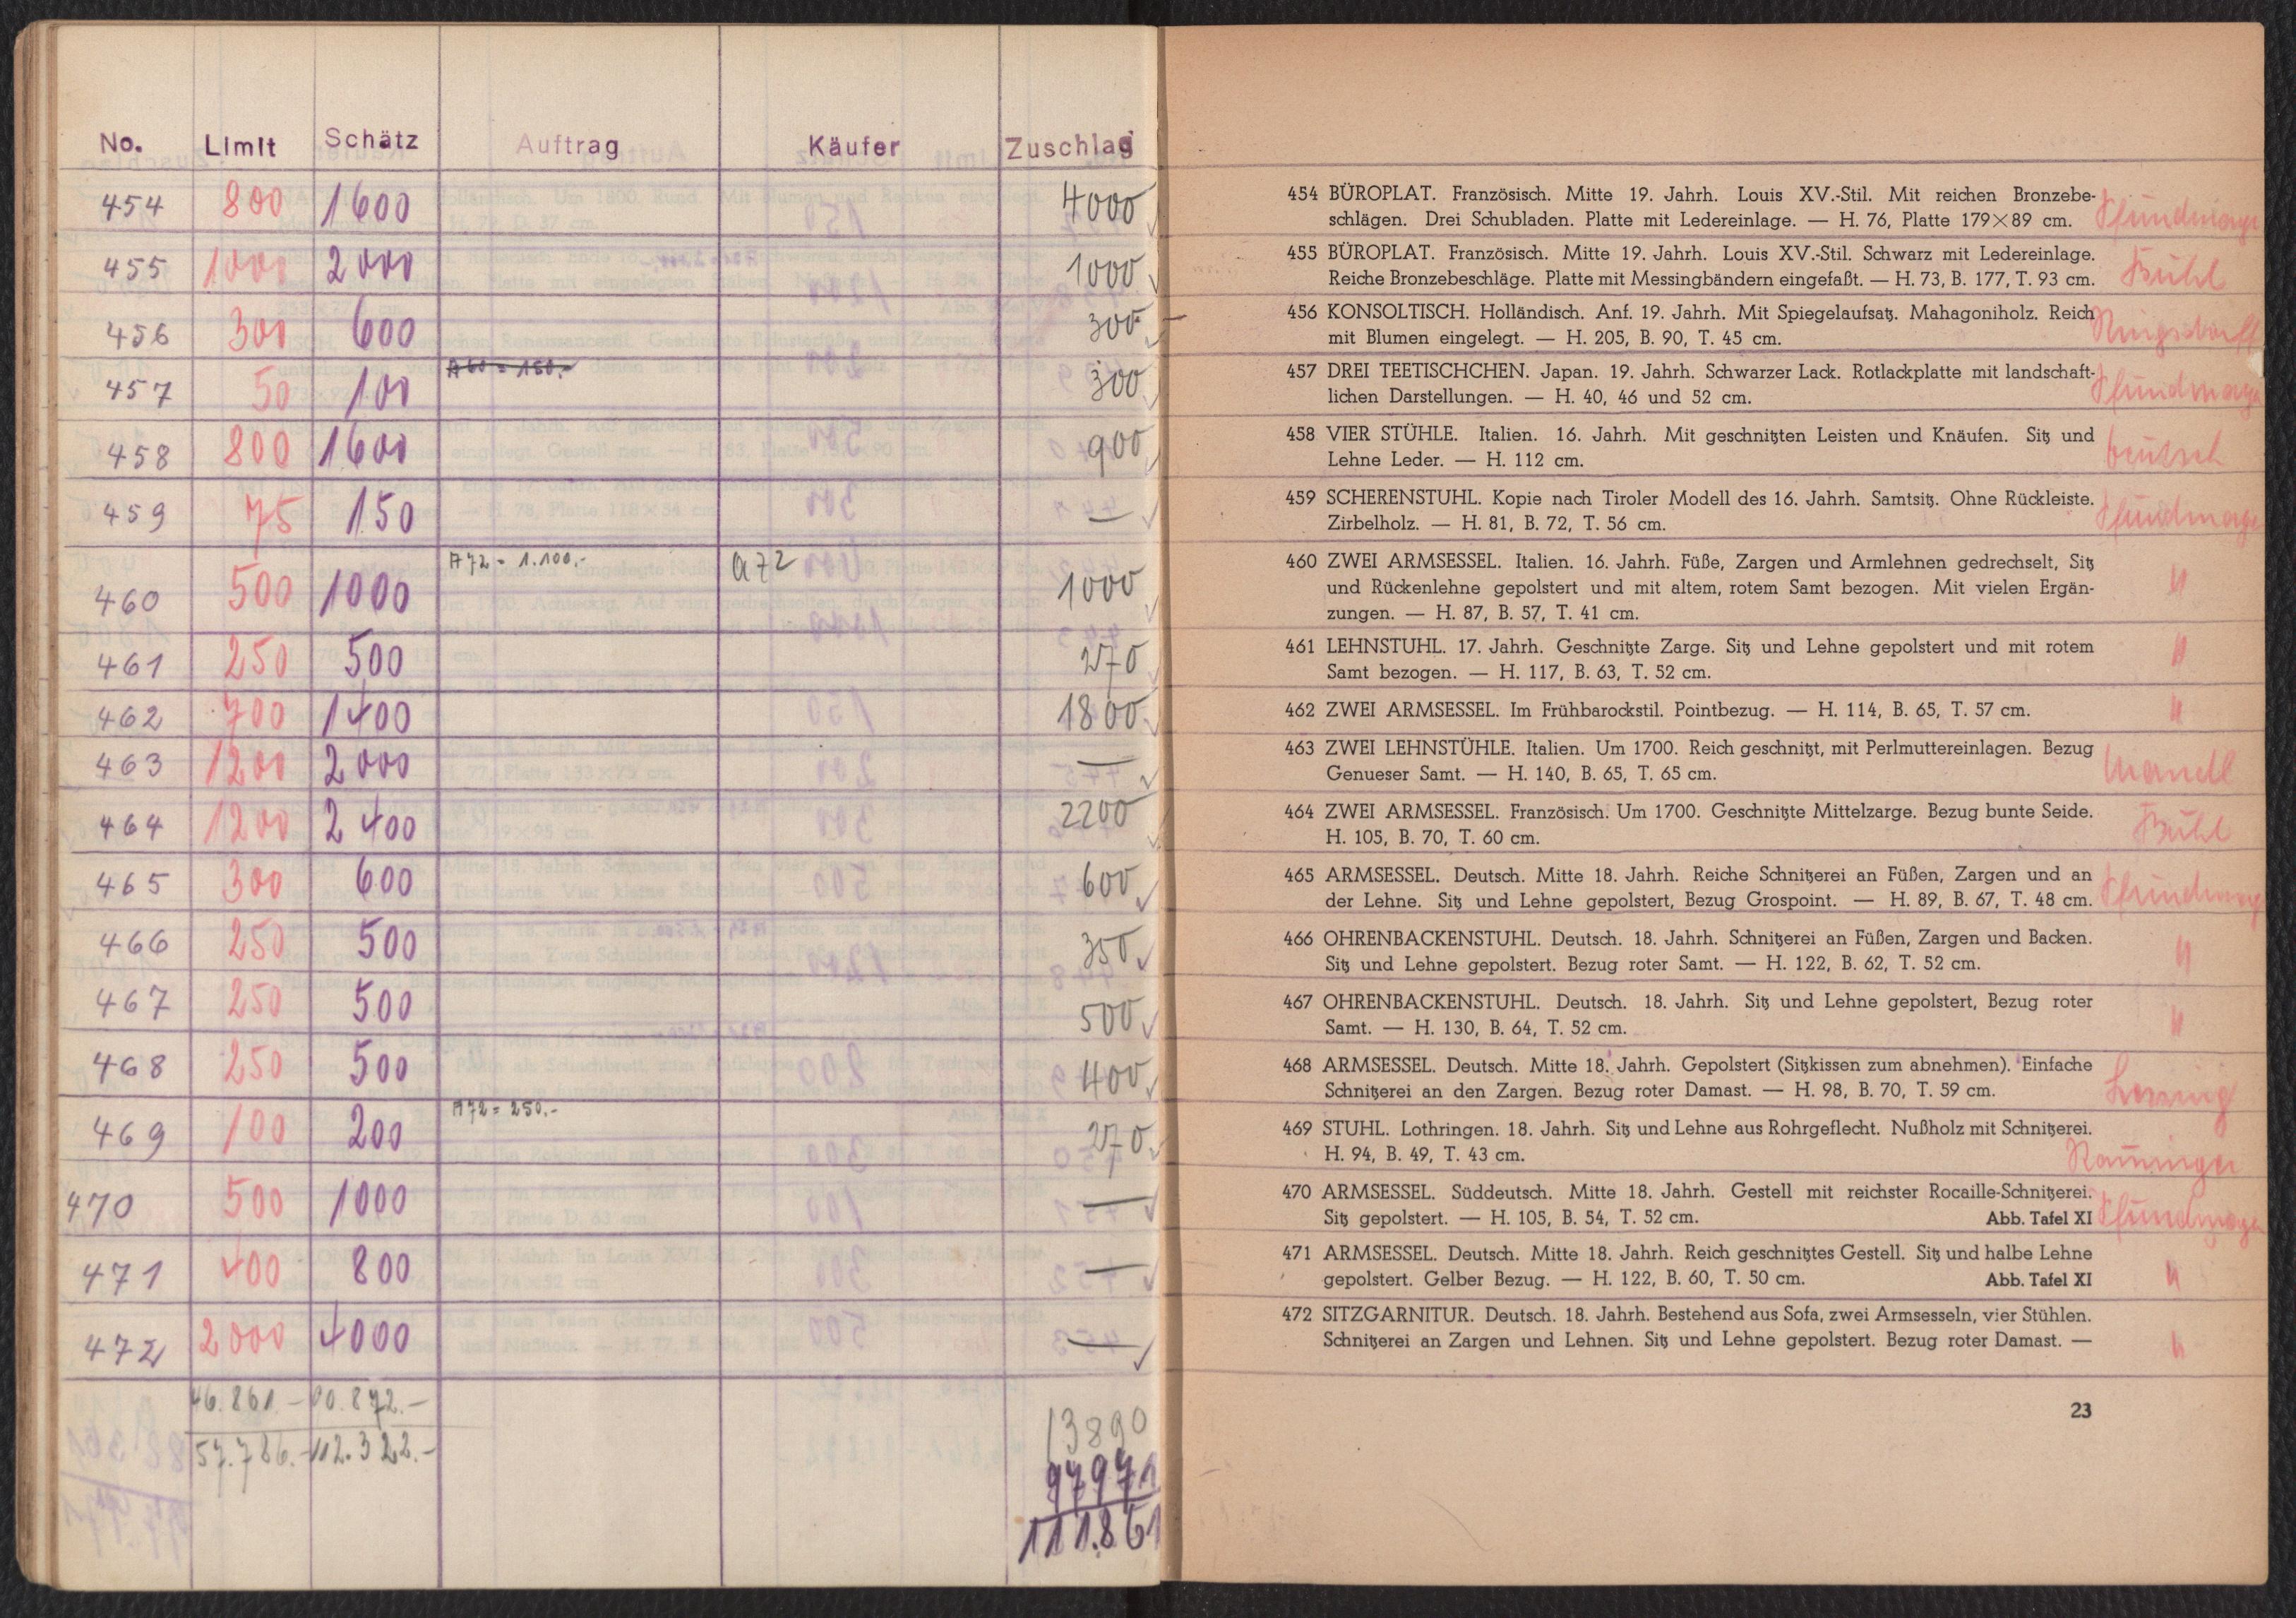 No. Limit Schätz Auftrag Käufer Zuschlag
454 800 1600 4000
455 1000 2000 1000
456 300 600 300
457 50 100 A 60 = 150.- 300
458 800 1600 900
459 75 150 —
460 500 1000 A 72 = 1.100.- a 72 1000
461 250 500 270
462 700 1400 1800
463 1200 2000 —
464 1200 2400 2200
465 300 600 600
466 250 500 350
467 250 500 500
468 250 500 400
469 100 200 A 72 = 250.- 270
470 500 1000 —
471 400 800 —
472 2000 4000 —
46.861.-
57.786.- 112.322.-
13890
97971
111.861
454 BÜROPLAT. Französisch. Mitte 19. Jahrh. Louis XV.-Stil. Mit reichen Bronzebe-
schlägen. Drei Schubladen. Platte mit Ledereinlage. — H. 76, Platte 179×89 cm.
455 BÜROPLAT. Französisch. Mitte 19. Jahrh. Louis XV.-Stil. Schwarz mit Ledereinlage.
Reiche Bronzebeschläge. Platte mit Messingbändern eingefaßt. — H. 73, B. 177, T. 93 cm. Bühl
456 KONSOLTISCH. Holländisch. Anf. 19. Jahrh. Mit Spiegelaufsatz. Mahagoniholz. Reich
mit Blumen eingelegt. — H. 205, B. 90, T. 45 cm. Ringsdorff
457 DREI TEETISCHCHEN. Japan. 19. Jahrh. Schwarzer Lack. Rotlackplatte mit landschaft-
lichen Darstellungen. — H. 40, 46 und 52 cm.
458 VIER STÜHLE. Italien. 16. Jahrh. Mit geschnitzten Leisten und Knäufen. Sitz und
Lehne Leder. — H. 112 cm.
459 SCHERENSTUHL. Kopie nach Tiroler Modell des 16. Jahrh. Samtsitz. Ohne Rückleiste.
Zirbelholz. — H. 81, B. 72, T. 56 cm.
460 ZWEI ARMSESSEL. Italien. 16. Jahrh. Füße, Zargen und Armlehnen gedrechselt, Sitz
und Rückenlehne gepolstert und mit altem, rotem Samt bezogen. Mit vielen Ergän- "
zungen. — H. 87, B. 57, T. 41 cm.
461 LEHNSTUHL. 17. Jahrh. Geschnitzte Zarge. Sitz und Lehne gepolstert und mit rotem "
Samt bezogen. — H. 117, B. 63, T. 52 cm.
462 ZWEI ARMSESSEL. Im Frühbarockstil. Pointbezug. — H. 114, B. 65, T. 57 cm. "
463 ZWEI LEHNSTÜHLE. Italien. Um 1700. Reich geschnitzt, mit Perlmuttereinlagen. Bezug
Genueser Samt. — H. 140, B. 65, T. 65 cm. Mandl
464 ZWEI ARMSESSEL. Französisch. Um 1700. Geschnitzte Mittelzarge. Bezug bunte Seide.
H. 105, B. 70, T. 60 cm. Bühl
465 ARMSESSEL. Deutsch. Mitte 18. Jahrh. Reiche Schnitzerei an Füßen, Zargen und an
der Lehne. Sitz und Lehne gepolstert, Bezug Grospoint. — H. 89, B. 67, T. 48 cm.
466 OHRENBACKENSTUHL. Deutsch. 18. Jahrh. Schnitzerei an Füßen, Zargen und Backen.
Sitz und Lehne gepolstert. Bezug roter Samt. — H. 122, B. 62, T. 52 cm. "
467 OHRENBACKENSTUHL. Deutsch. 18. Jahrh. Sitz und Lehne gepolstert, Bezug roter
Samt. — H. 130, B. 64, T. 52 cm. "
468 ARMSESSEL. Deutsch. Mitte 18. Jahrh. Gepolstert (Sitzkissen zum abnehmen). Einfache
Schnitzerei an den Zargen. Bezug roter Damast. — H. 98, B. 70, T. 59 cm.
469 STUHL. Lothringen. 18. Jahrh. Sitz und Lehne aus Rohrgeflecht. Nußholz mit Schnitzerei.
H. 94, B. 49, T. 43 cm.
470 ARMSESSEL. Süddeutsch. Mitte 18. Jahrh. Gestell mit reichster Rocaille-Schnitzerei.
Sitz gepolstert. — H. 105, B. 54, T. 52 cm. Abb. Tafel XI
471 ARMSESSEL. Deutsch. Mitte 18. Jahrh. Reich geschnitztes Gestell. Sitz und halbe Lehne
gepolstert. Gelber Bezug. — H. 122, B. 60, T. 50 cm. Abb. Tafel XI "
472 SITZGARNITUR. Deutsch. 18. Jahrh. Bestehend aus Sofa, zwei Armsesseln, vier Stühlen.
Schnitzerei an Zargen und Lehnen. Sitz und Lehne gepolstert. Bezug roter Damast. — "
23